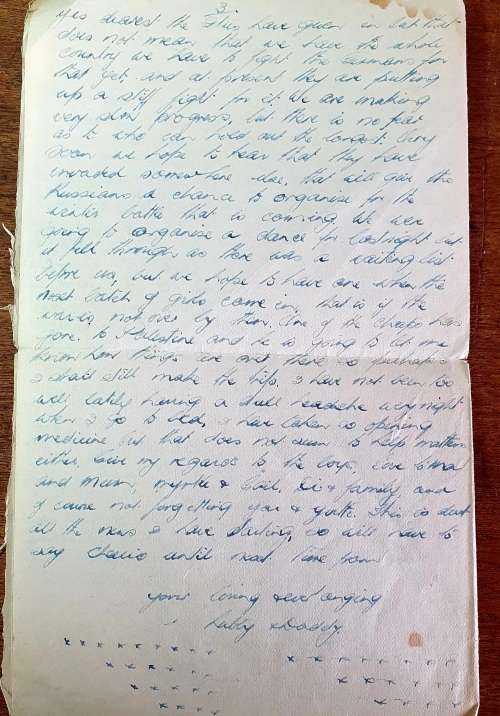 3.
yes dearest the Ities have given in but that
does not mean that we have the whole
country we have to fight the Germans for
that yet and at present they are putting
up a stiff fight for it. We are making
very slow progress, but there is no fear
as to who can hold out the longest. Very
soon we hope to hear that they have
invaded somewhere else, that will give the
Russians a chance to organise for the
winter battle that is coming. We were
going to organise a dance for last night but
it fell through as there was a waiting list
before us, but we hope to have one when the
next batch of girls come in, that is if the
war is not over by then. One of the chaps has
gone to Palestine and he is going to let me
know how things are out there so perhaps
I shall still make the trip. I have not been too
well lately having a dull headache every night
when I go to bed, I have taken so opening
medicine but that does not seem to help matters
either. Give my regards to the boys, love to
and Mum, Myrtle & family, and
of course not forgetting you & This is about
all the news I have darling, so will have to
say cheerio until next time from
your loving & ever longing
hubby & Daddy.
x x x x x x x x x x x x x x x x
x x x x x x x x x x x x
x x x x x x x x
x x x x